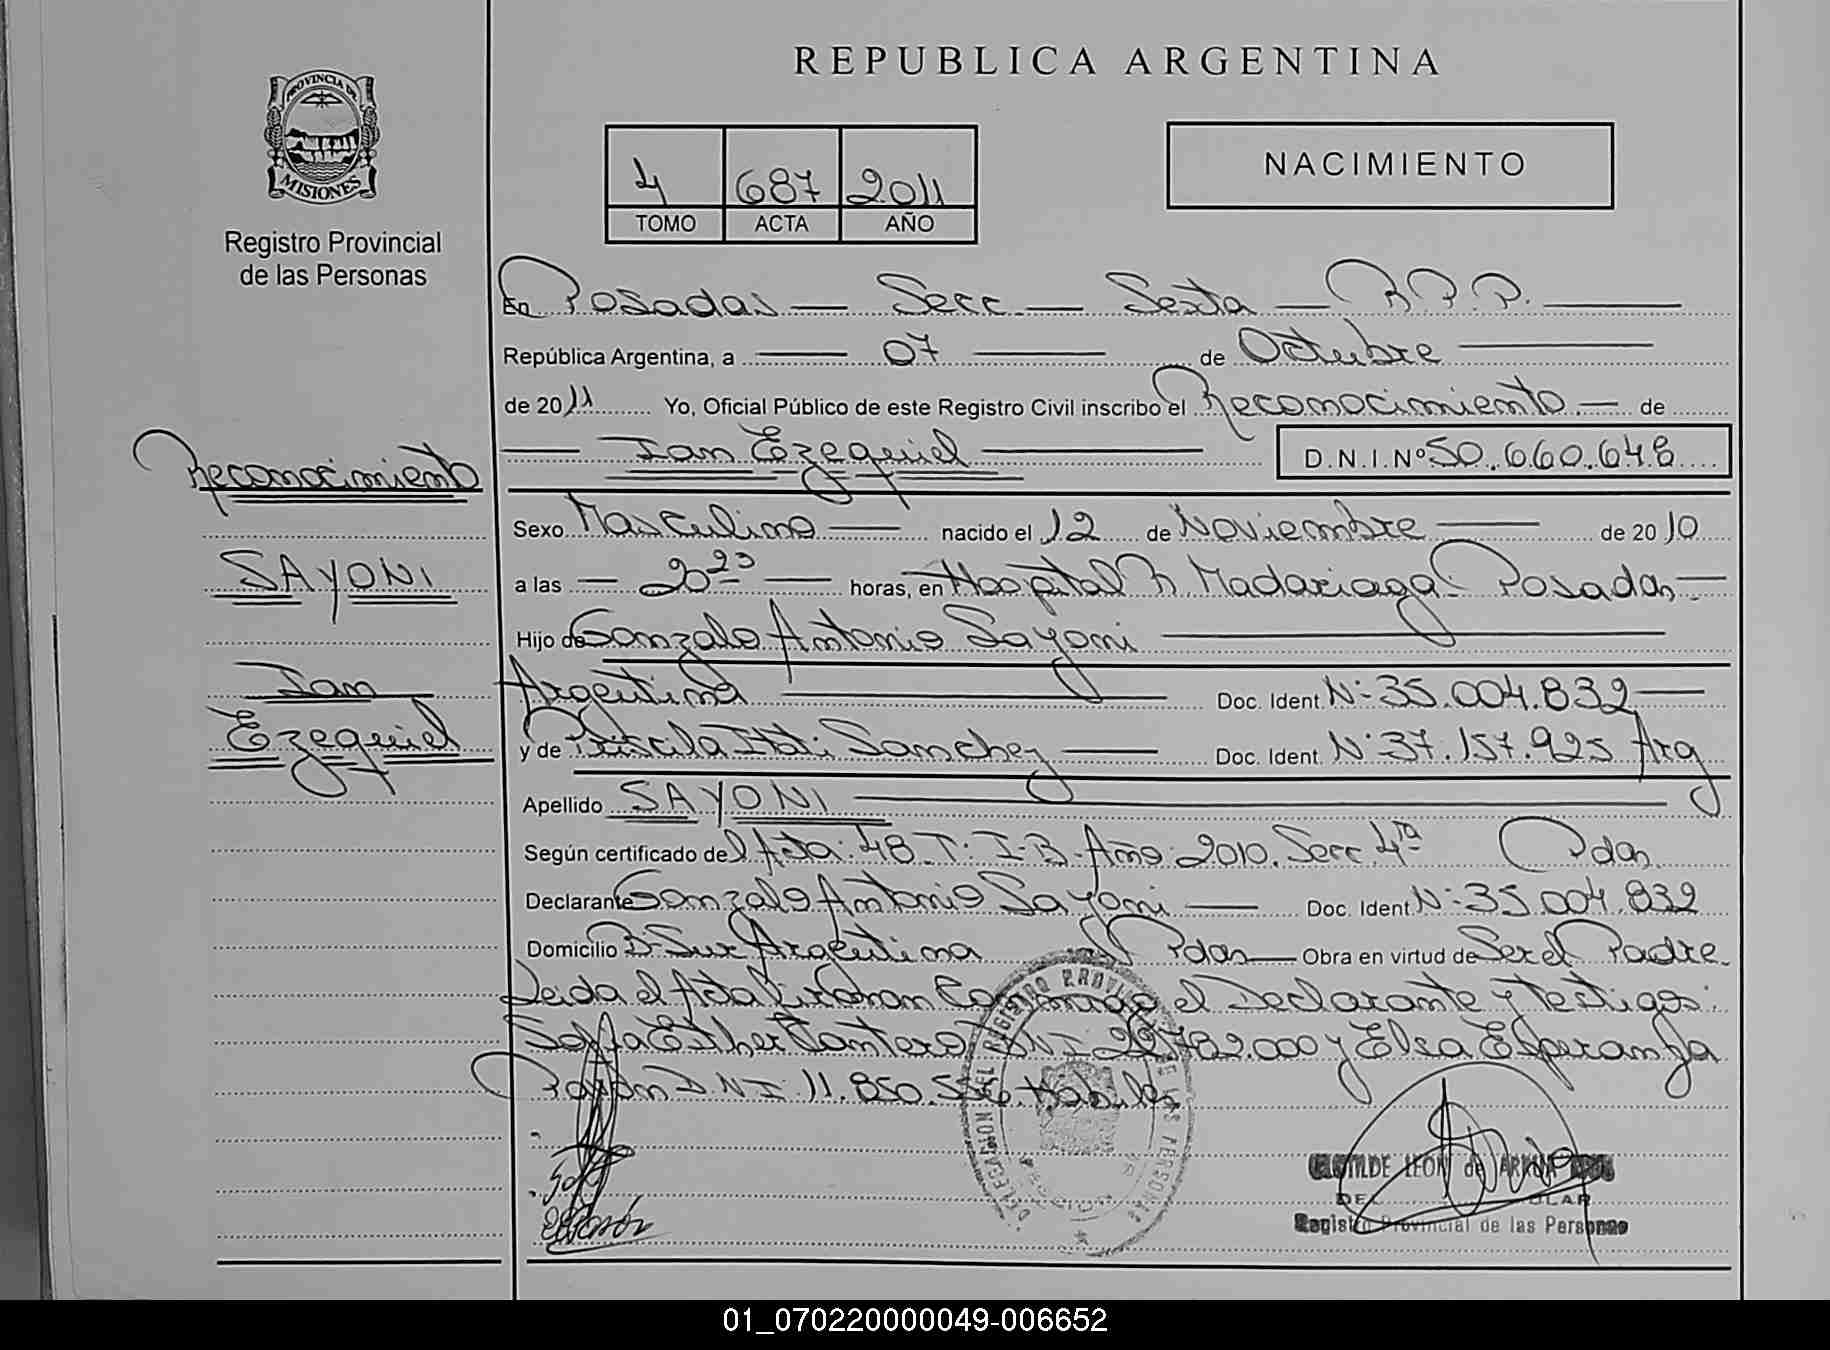 REPUBLICA ARGENTINA
PROVINCIA DE
MISIONES
Registro Provincial
de las Personas
4 687 2011
TOMO ACTA AÑO
NACIMIENTO
En Posadas — Secc — Sexta — R.P.P.
República Argentina, a 07 de Octubre
de 2011 Yo, Oficial Público de este Registro Civil inscribo el Reconocimiento de
Ian Ezequiel D.N.I.Nº 50.660.648
Reconocimiento
SAYONI
Ian
Ezequiel
Sexo Masculino nacido el 12 de Noviembre de 2010
a las 20 23 horas, en Hospital R. Madariaga - Posadas
Hijo de Gonzalo Antonio Sayoni
Argentina Doc. Ident. Nº 35.004.832
y de Priscila Itati Sanchez Doc. Ident. Nº 37.157.925 Arg
Apellido SAYONI
Según certificado del Acta: 48. T: I-B. Año: 2010. Secc 4ta Pdas
Declarante Gonzalo Antonio Sayoni Doc. Ident. Nº 35.004.832
Domicilio Bº Sur Argentina Pdas Obra en virtud de Ser el Padre.
Leida el Acta Firman Conmigo el Declarante y testigos:
Esther Cantero DNI 22.782.000 y Elsa Esperanza
DNI: 11.850.556 Habiles
DELEGACION DEL REGISTRO PROVINCIAL DE LAS PERSONAS
LEON de
Registro Provincial de las Personas
01_070220000049-006652